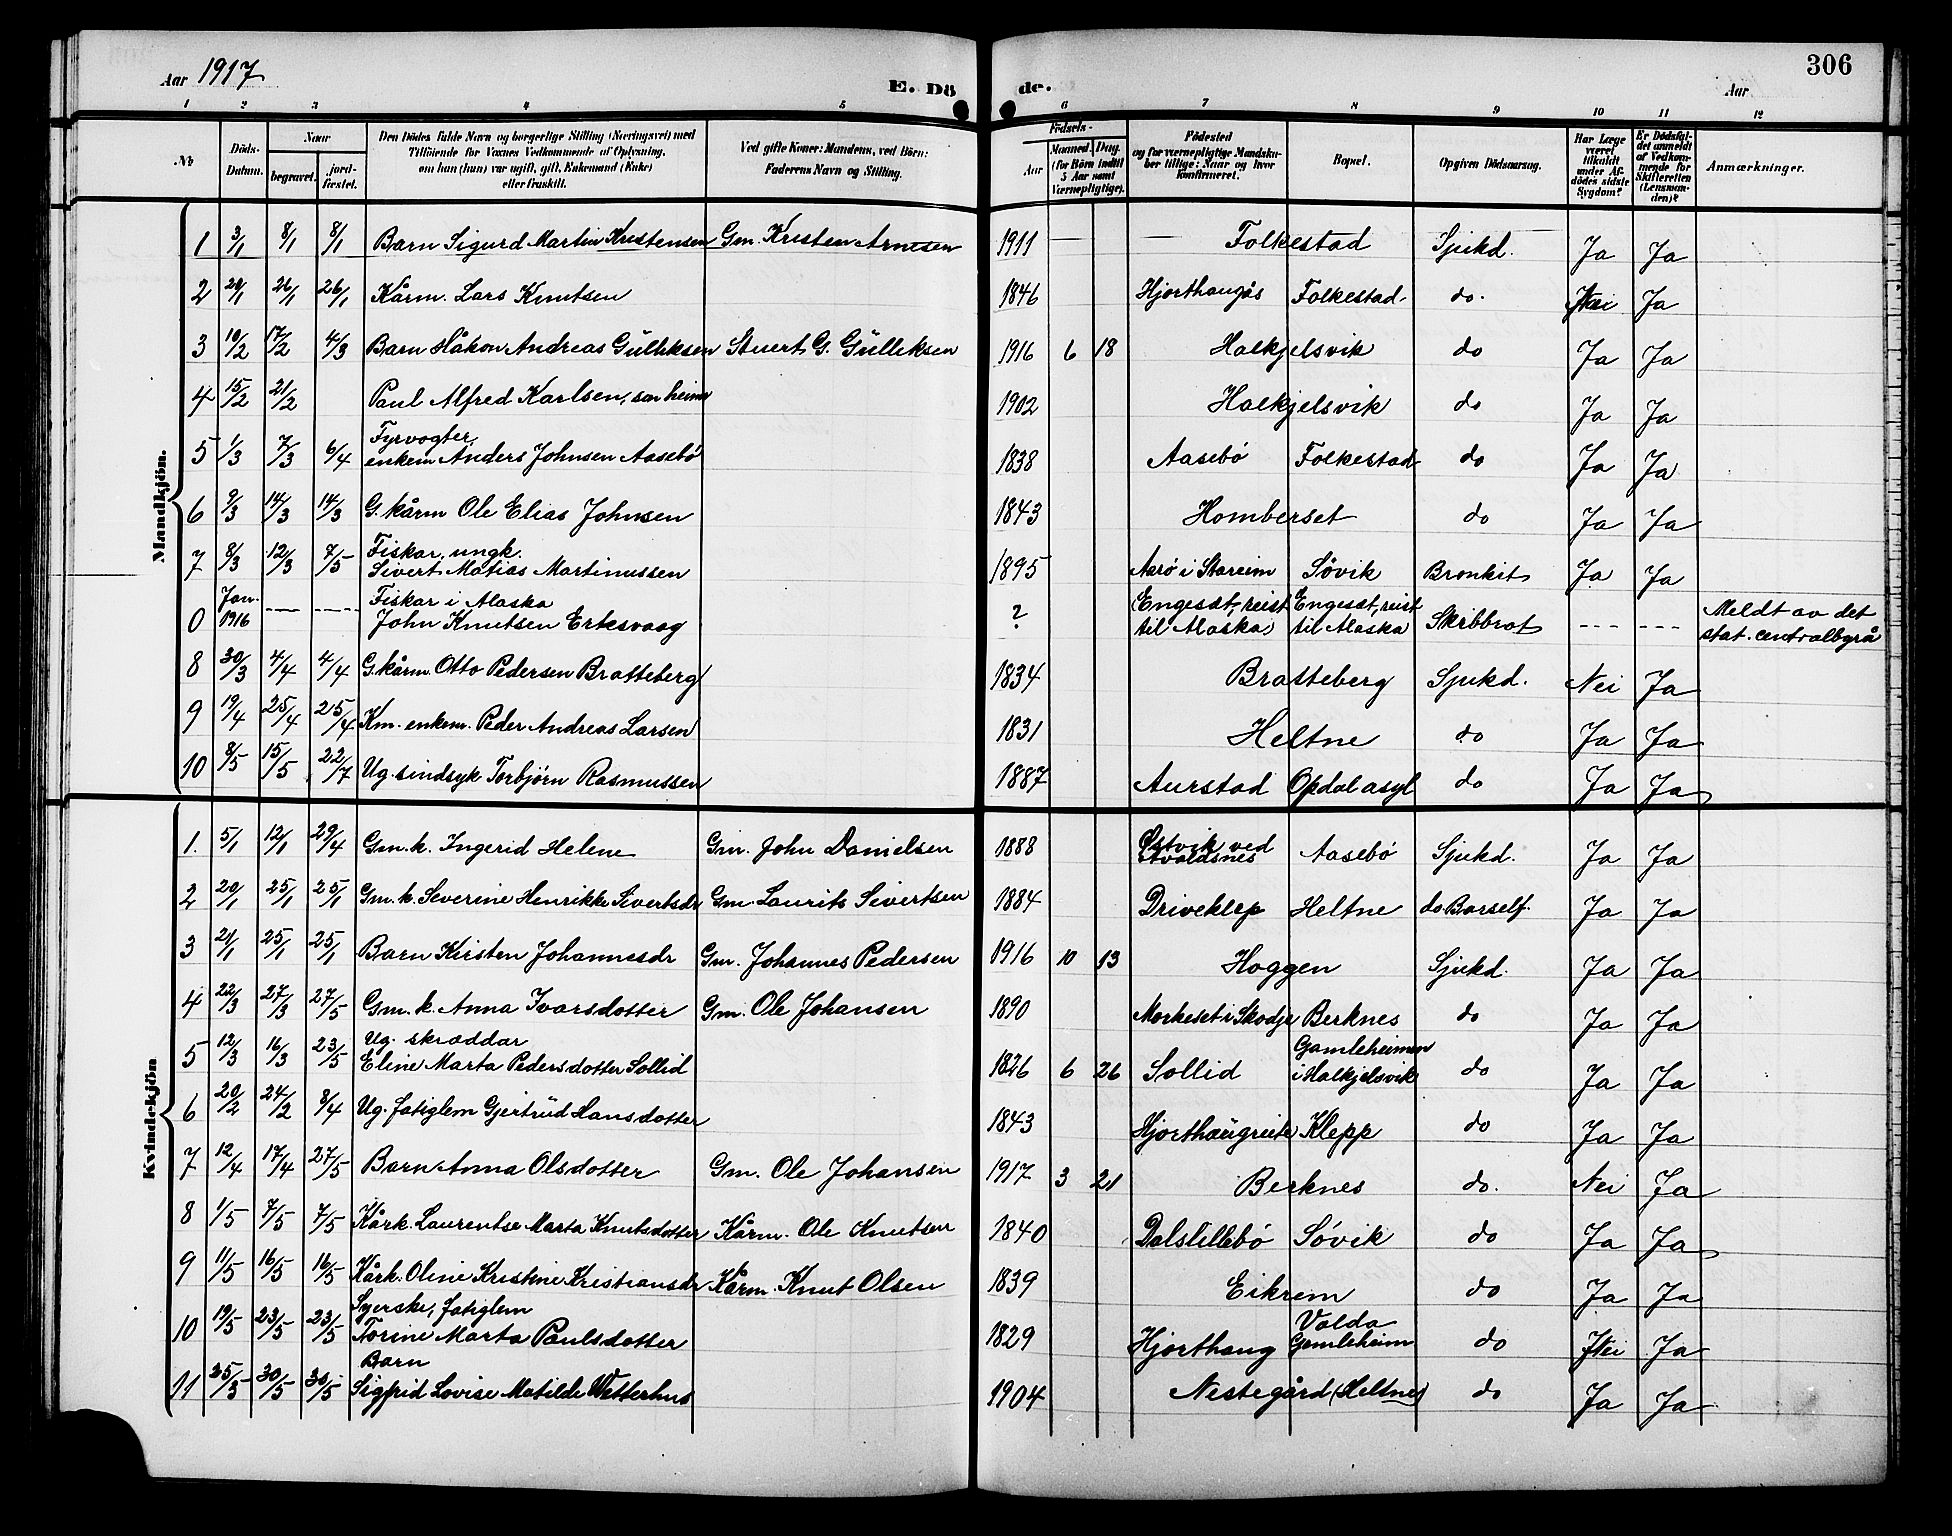 Aar 1917
E. Dö de.
Aar
306
1 2 3 4 5 6 7 8 9 10 11 12
No
Döds-Datum.
Naar
begravet.
jord-fæstet.
Den Dödes fulde Navn og borgerlige Stilling (Næringsvei) med
Tilföiende for Voxnes Vedkommende af Oplysning,
om han (hun) var ugift, gift, Enkemand (Enke)
eller fraskilt.
Ved gifte Koner: Mandens, ved Börn:
Faderens Navn og Stilling.
Födsels-
Aar
Maaned. Dag.
(for Börn indtil
5 Aar samt
Værnepligtige).
Födested
og for værnepligtige Mandska-
ber tillige: Naar og hvor
konfirmeret.
Bopæl.
Opgiven Dödsaarsag.
Har Læge
været
tilkaldt
under Af-
dödes sidste
Sygdom?
Er Dödsfal-
det anmeldt
af Vedkom-
mende for
Skifteretten
(Lensman-
den)?
Anmærkninger.
Mandkjön.
1 3/1 8/1 8/1 Barn Sigurd Martin Kristensen Gm. Kristen Arnesen 1911 — — Folkestad Sjukd. Ja Ja
2 20/1 26/1 26/1 Kårm. Lars Knutsen 1846 Hjorthaugås Folkestad do. Nei Ja
3 10/2 17/2 4/3 Barn Håkon Andreas Gulliksen Stuert G. Gulliksen 1916 6 18 Halkjelsvik do Ja Ja
4 15/2 21/2 Paul Alfred Karlsen, son heime 1902 Halkjelsvik do Ja Ja
5 1/3 7/3 6/4 Fyrvogter,
enkem Anders Johnsen Aasebö 1838 Aasebö Folkestad do Ja Ja
6 9/3 14/3 14/3 G. kårm Ole Elias Johnsen 1843 Homberset do Ja Ja
7 8/3 12/3 7/5 Fiskar, ungk.
Sivert Matias Martinussen 1895 Aarö i Stareim Sövik Bronkit Ja Ja
0 Jan. 1916 --- --- Fiskar i Alaska
John Knutsen Eriksvaag ? Engeset, reist til Alaska Engeset, reist til Alaska Skibbrot --- --- Meldt av det
stat. centralbyrå
8 30/3 4/4 4/4 G. kårm. Otto Pedersen Bratteberg 1834 Bratteberg Sjukd. Nei Ja
9 19/4 25/4 25/4 Km. enkem. Peder Andreas Larsen 1831 Heltne do Ja Ja
10 8/5 15/5 22/7 Ug. sindsyk Torbjörn Rasmussen 1887 Aurstad Opdal asyl do Ja Ja
Kvindekjön
1. 5/1 12/1 29/4 Gm. k. Ingerid Helene Gm. John Danielsen 1888 Østvik ved
Avaldsnes Aasebö Sjukd. Ja Ja
2 20/1 25/1 25/1 Gm. k. Severine Henrikke Sivertsdr Gm. Laurits Sivertsen 1884 Driveklep Heltne do Barself. Ja Ja
3 21/1 25/1 25/1 Barn Kirsten Johannesdr Gm. Johannes Pedersen 1916 10 13 Hoggen Sjukd. Ja Ja
4 22/3 27/3 27/5 Gm. k. Anna Ivarsdotter Gm. Ole Johansen 1890 Morkeset i Skodje Berknes do Ja Ja
5 12/3 16/3 23/5 Ug. skræddar
Eline Marta Pedersdotter Sollid 1826 6 26 Sollid Gamleheimen
i Halkjelsvik do Ja Ja
6 20/2 24/2 8/4 Ug. fatiglem Gjertrud Hansdotter 1843 Klepp do Ja Ja
7 12/4 17/4 27/5 Barn Anna Olsdotter Gm. Ole Johansen 1917 3 21 Berknes do. Nei Ja
8 1/5 7/5 7/5 Kårk. Laurentse Marta Knutsdotter Kårm. Ole Knutsen 1840 Dalslillebö Sövik do Ja Ja
9 11/5 16/5 16/5 Kårk. Oline Kristine Kristiansdr Kårm. Knut Olsen 1839 Eikrem do Ja Ja
10 19/5 23/5 23/5 Syerske, fatiglem
Torine Marta Paulsdotter 1829 Hjorthaug Volda
Gamleheim do Nei Ja
11 25/5 30/5 30/5 Barn
Sigfrid Lovise Matilde Wetterhus 1904 Nestegård (Heltne) do Ja Ja